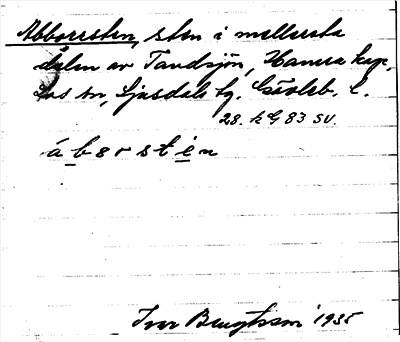 Abborrsten, sten i mellersta
delen av Tandsjön, Hamra kap.
Los sn, Ljusdals tg, Gävleb. l.
28. h G 83 SV.
áborstėn
Ivar Bengtsson 1935